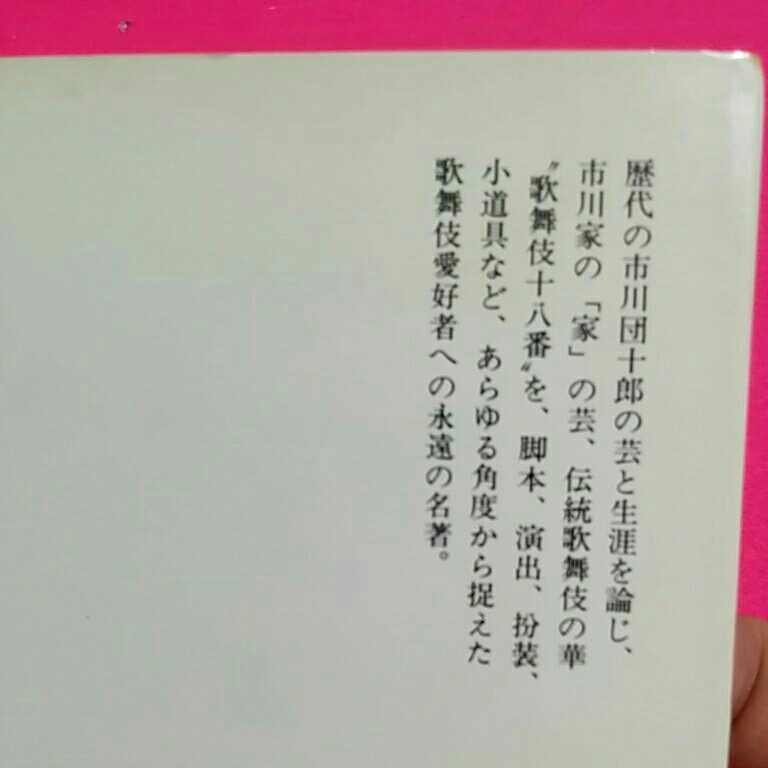 歴代の市川団十郎の芸と生涯を論じ、
市川家の「家」の芸、伝統歌舞伎の華
〝歌舞伎十八番〟を、脚本、演出、扮装、
小道具など、あらゆる角度から捉えた
歌舞伎愛好者への永遠の名著。